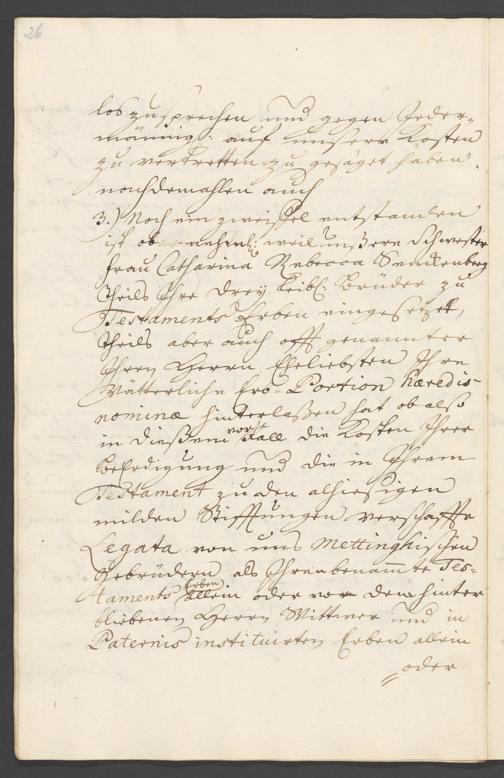 26
loszusprechen und gegen Jeder-
männigl: auf unsere Kosten
zu vertretten zu gesaget haben.
nachdemahlen auch
3.) Noch ein zweiffel entstanden
ist ob nehml: weil unßere Schwester
Frau Catharina Rebecca Senckenberg
theils Ihre drey Leibl: Brüder zu
Testaments Erben eingesetzt,
theils aber auch offt genannter
Ihren Herrn Eheliebsten Ihre
Vätterliche Erb-Portion hæredis-
nominæ hinterlaßen hat ob also
in dießem vor Fall die Kosten Ihrer
Beerdigung und die in Ihrem
Testament zu den alhiesigen
milden Stifftungen verschaffte
Legata von uns Mettinghischen
Gebrüdern als Ihren benamte Tes-
taments Erben allein oder von dem hinter
bliebenen Herrn Wittwer und in
Paternis instituirten Erben allein
oder